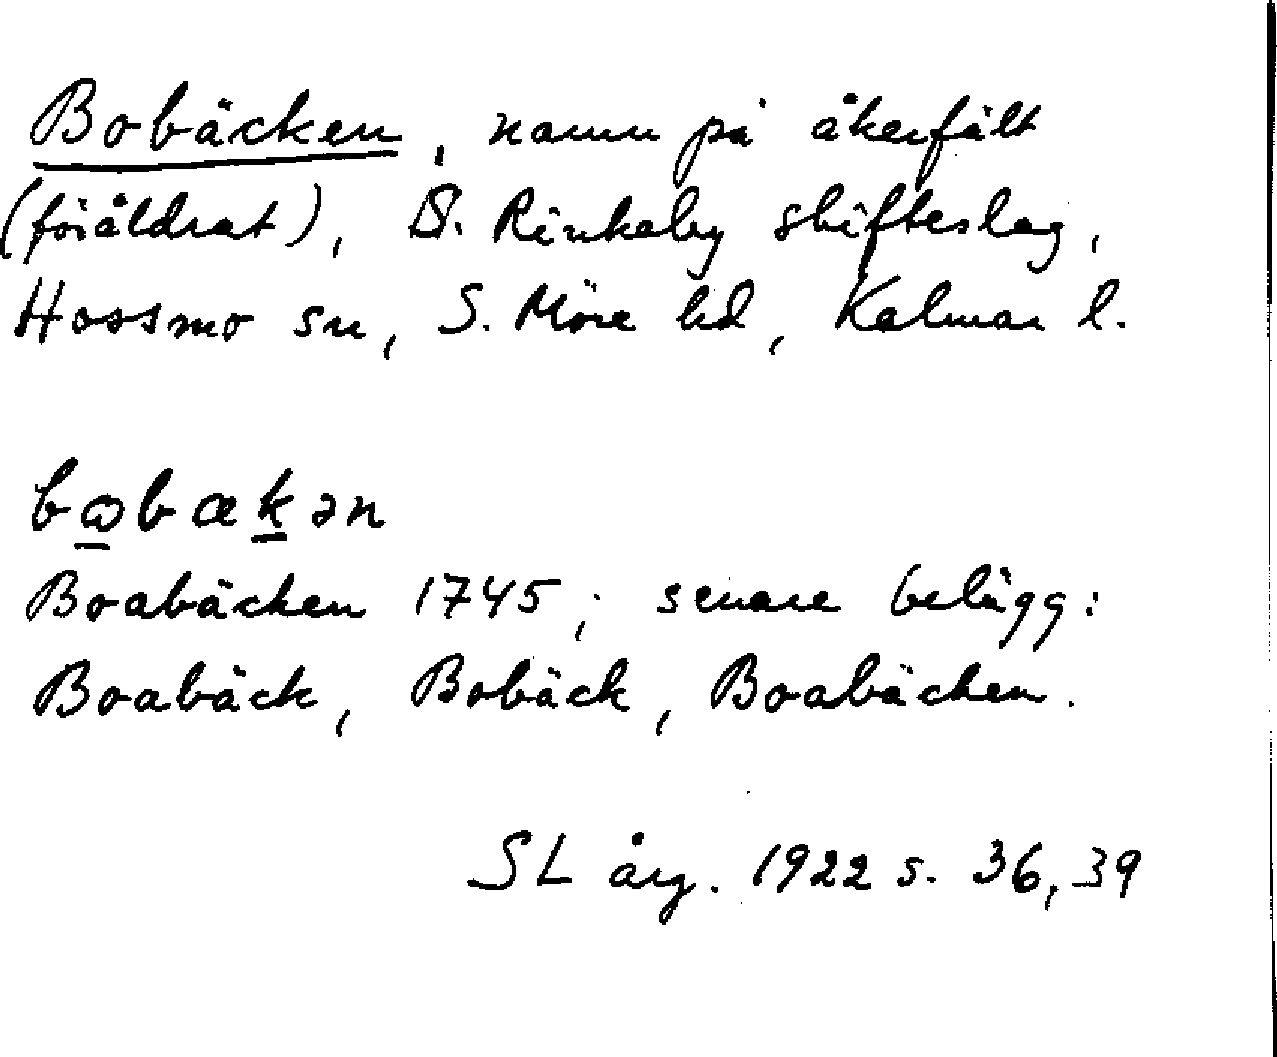 Bobäcken, namn på åkerfält
(föråldrat), S. Rinkaby skifteslag,
Hossmo sn, S. Möre hd, Kalmar l.
bωbækən
Boabäcken 1745; senare belägg:
Boabäck, Bobäck, Boabäcken.
SL årg. 1922 s. 36, 39